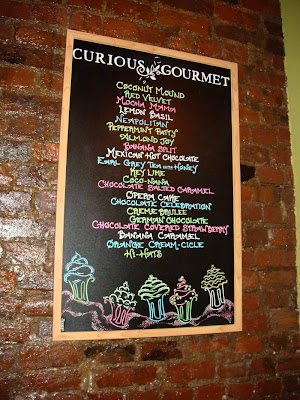 CURIOUS GOURMET
COCONUT MOUND
RED VELVET
MOCHA MAMA
LEMON BASIL
NEAPOLITAN
PEPPERMINT PATTY
ALMOND JOY
BANANA SPLIT
MEXICAN HOT CHOCOLATE
EARL GREY TEA WITH HONEY
KEY LIME
COCO-NANA
CHOCOLATE SALTED CARAMEL
OPERA CAKE
CHOCOLATE CELEBRATION
CREME BRULEE
GERMAN CHOCOLATE
CHOCOLATE COVERED STRAWBERRY
BANANA CARAMEL
ORANGE CREAM-CICLE
HI-HATS